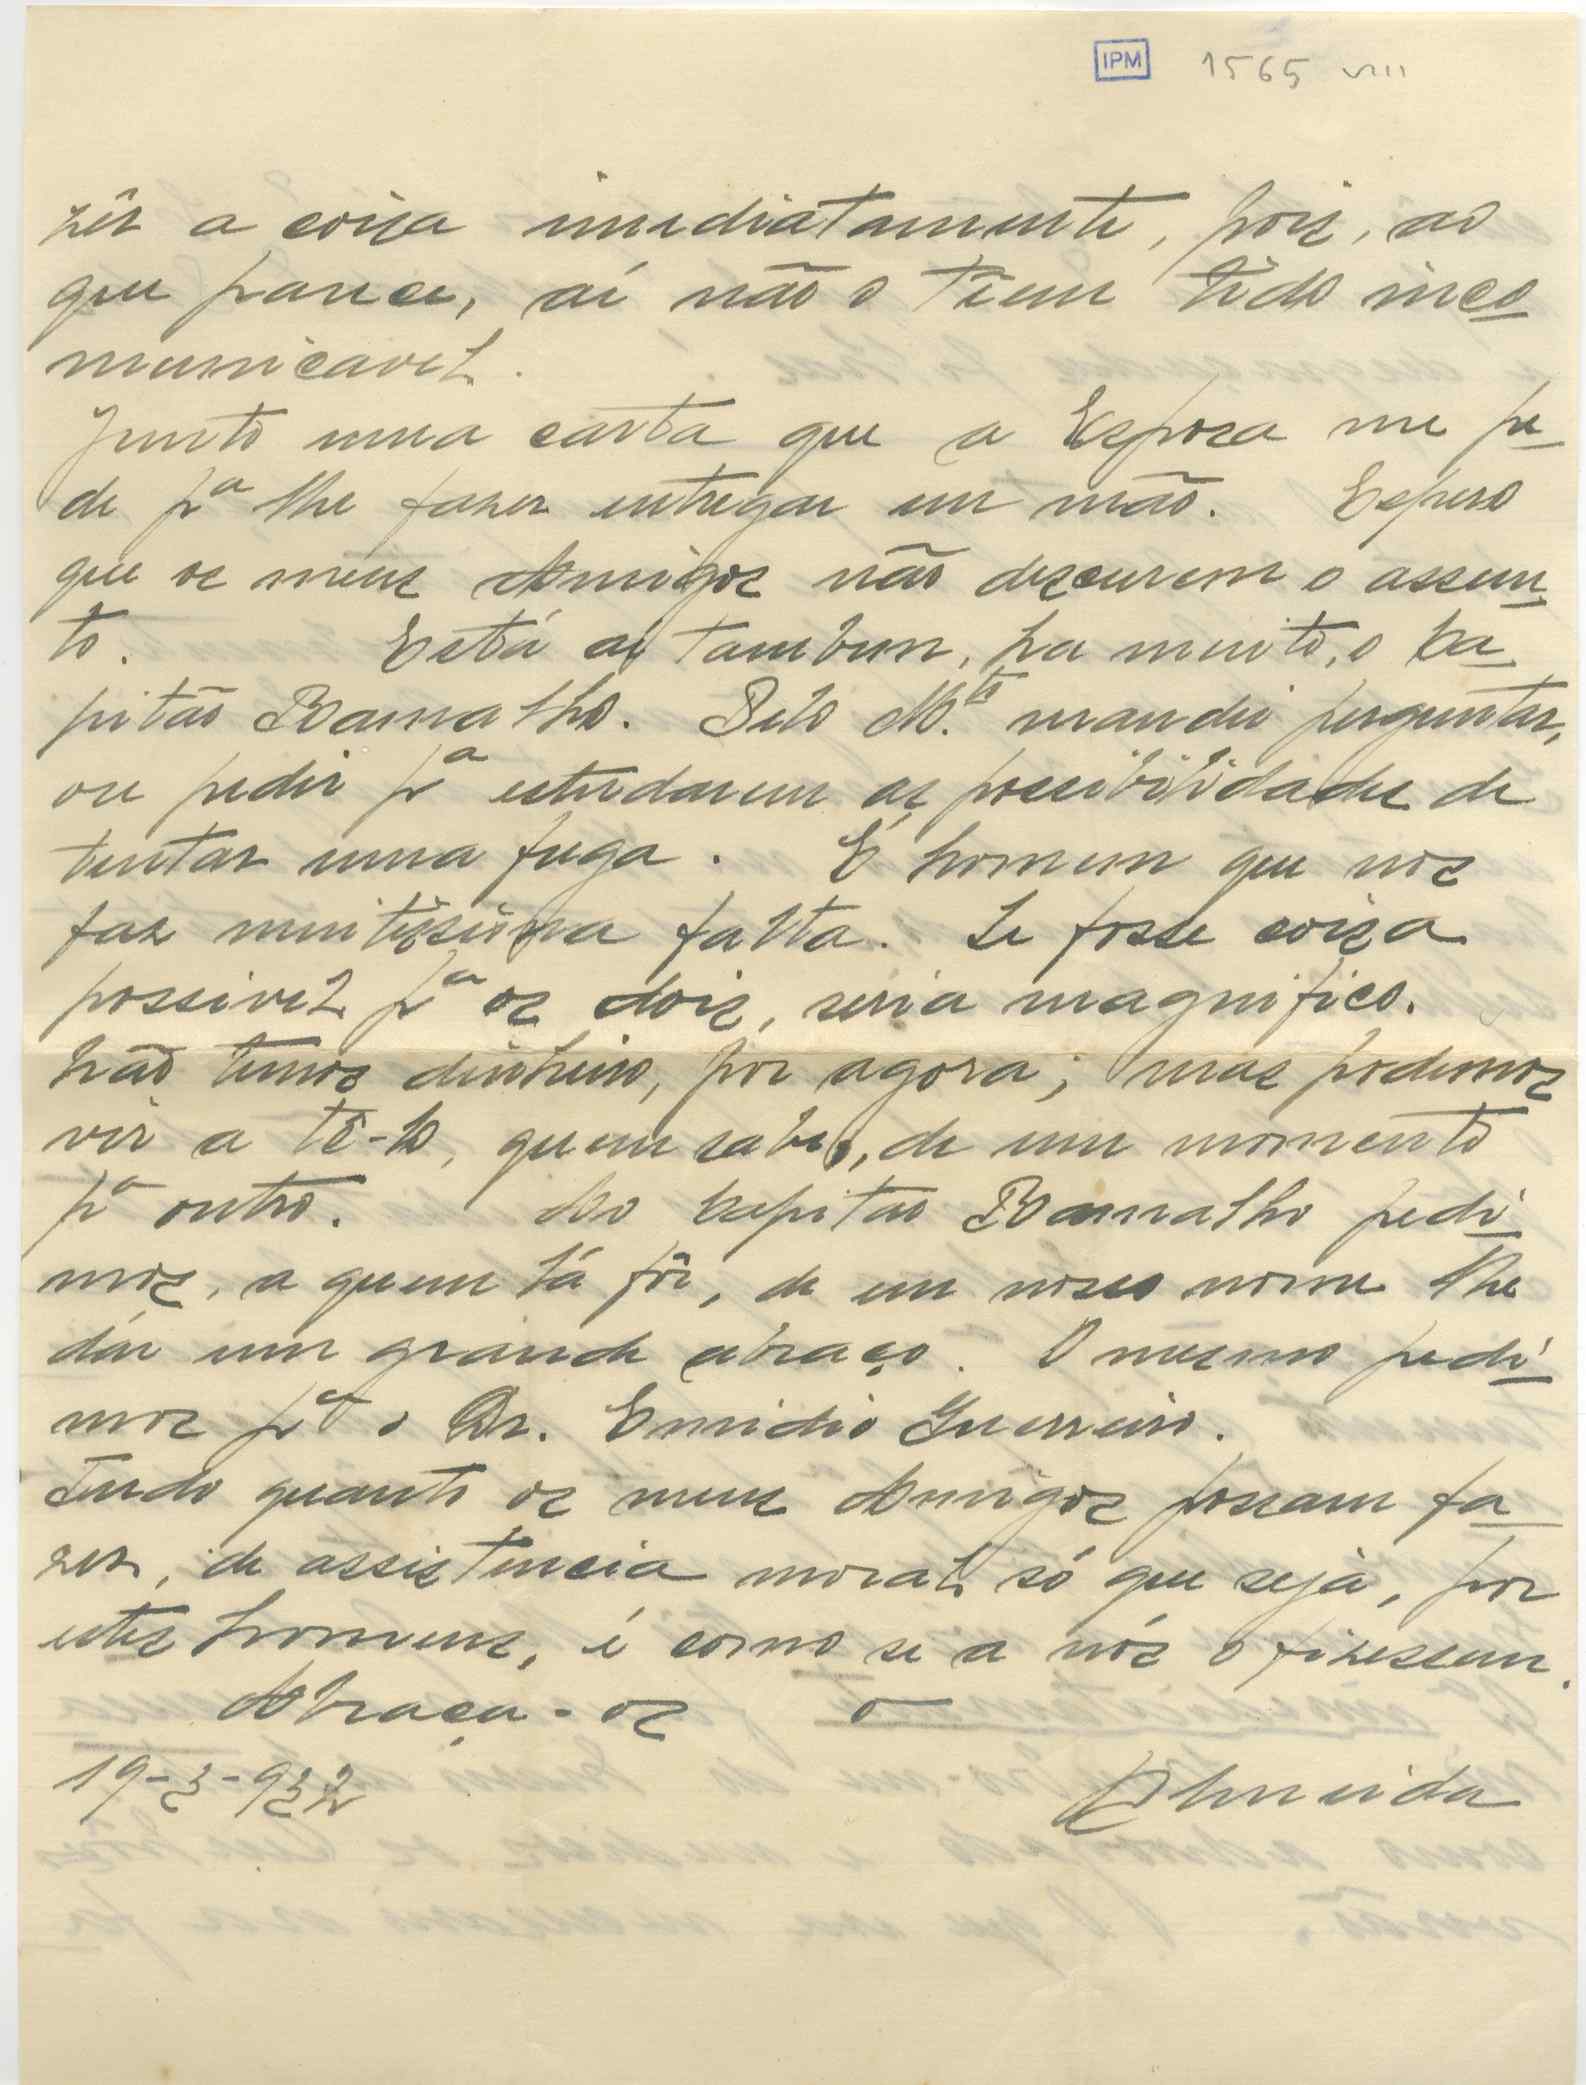 IPM 1565 VIII
zêr a coisa imediatamente, pois, ao
que parece, aí não o têem tido inco
municavel.
Junto uma carta que a Esposa me pe
de pª lhe fazer entregar em mão. Espero
que os meus Amigos não descurem o assun
to. Está aí tambem, ha muito, o Ca
pitão Ramalho. Pelo M.to mandei perguntar,
ou pedir pª estudarem as possibilidades de
tentar uma fuga. É homem que nos
faz muitissima falta. Se fosse coisa
possivel pª os dois, seria magnifico.
Não temos dinheiro, por agora; mas podemos
vir a tê-lo, quem sabe, de um momento
pª outro. Ao Capitão Ramalho pedi
mos, a quem lá fôr, de em nosso nome lhe
dár um grande abraço. O mesmo pedi
mos pª o Dr. Emidio Guerreiro.
Tudo quanto os meus Amigos possam fa
zer, de assistencia moral só que seja, por
estes homens, é como se a nós o fizessem.
Abraça-os o
19-3-932 Almeida